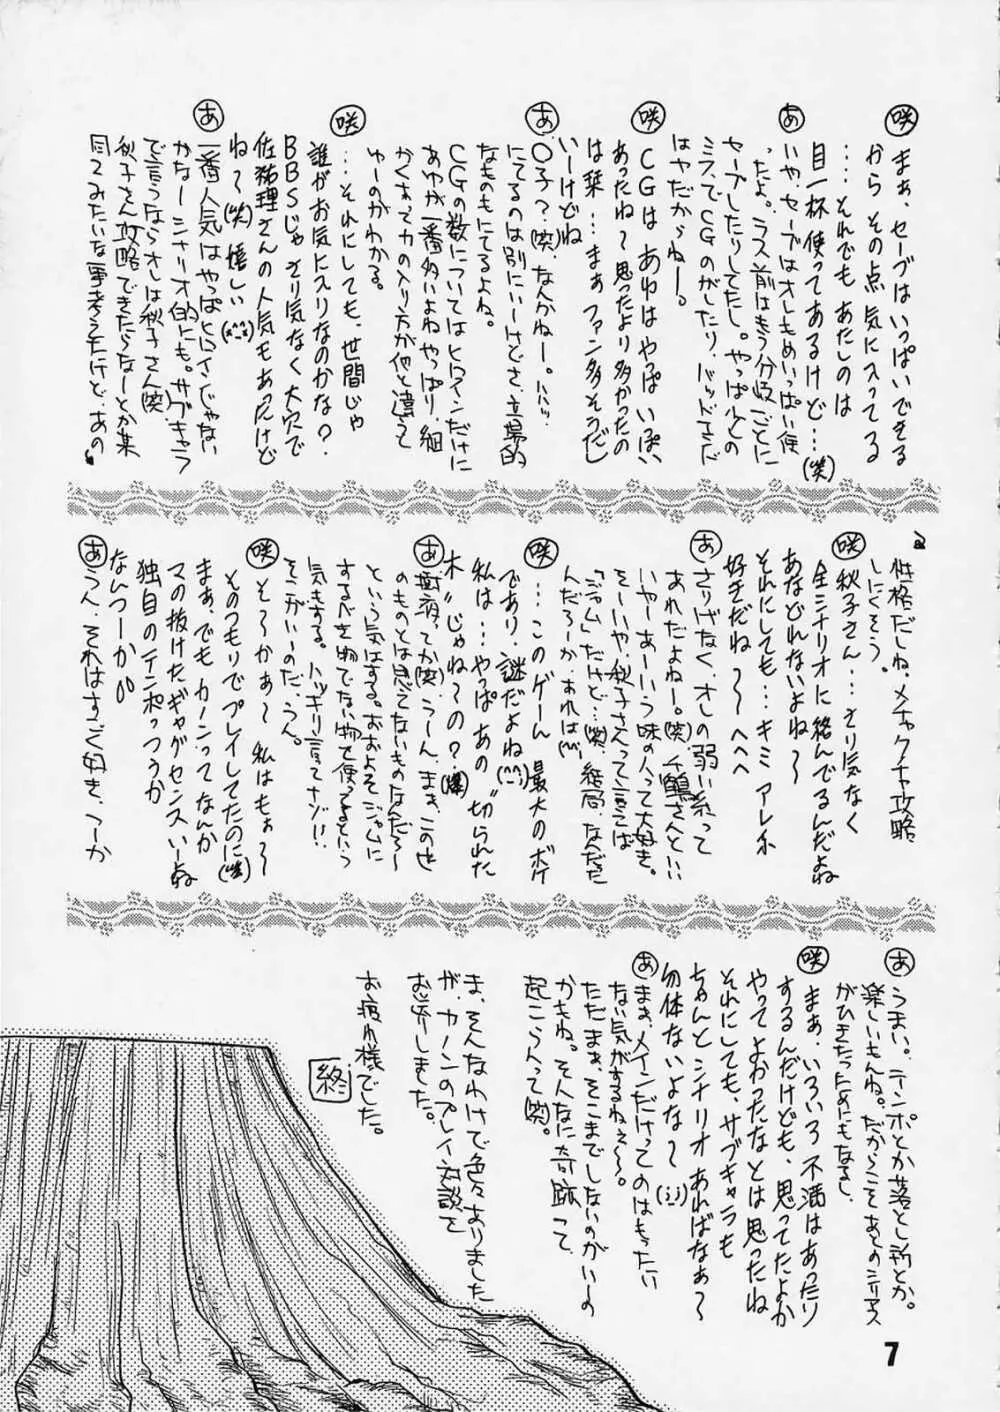 咲 まぁ、セーブはいっぱいできる
からその点気に入ってる
…それでもあたしのは
目一杯使ってあるけど…(笑)
あ いやセーブはオレもめいっぱい使
ったよ。ラス前はもう分岐ごとに
セーブしたりしてたし。やっぱ少しの
ミスでCGのがしたり、バッドエンド
はやだからねー。
咲 CGはあゆはやっぱいっぱい
あったね～思ったより多かったの
は栞…まぁファン多そうだし
いーけどね
あ ○子?(笑)、なんかねー。ハハッ
にてるのは別にいーけどさ、立場的
なものもにてるよね。
CGの数についてはヒロインだけに
あゆが一番多いよねやっぱり、細
かくまで力の入り方が他と違うて
ゆーのがわかる。
咲 …それにしても、世間じゃ
誰がお気に入りなのかな?
BBSじゃさり気なく大穴で
佐祐理さんの人気もあったけど
ね～(笑)嬉しい(*^^*)
あ 一番人気はやっぱヒロインじゃない
かなーシナリオ的にも。サブキャラ
で言うならオレは秋子さん(笑)
秋子さん攻略できたらなーとか某
同てみたいな事考えたけど、あの
性格だしね。メチャクチャ攻略
しにくそう。
咲 秋子さん…さり気なく
全シナリオに絡んでるんだよね
あなどれないよね～
それにしても…キミアレネ
好きだね～～へへへ
あ さりげなく、オレの弱い系って
あれだよねー。(笑)、千鶴さんといい
いやーあーいう味の人って大好き。
そーいや、秋子さんって言えば
「ジャム」だけど…(笑)、結局、なんだた
んだろーか、あれは(^^;
咲 …このゲーム最大のボケ
であり、謎だよね(^^;)
私は…やっぱあの“切られた
木”じゃね～の?(爆)
あ 樹液ってか(笑)、うーん、まぁ、この世
のものとは思えてないものなんだろー
という気はする。おおよそジャムに
するべき物でない物を使ってるという
気もする。ハッキリ言ってナゾ!!
そこがいーのだ、うん。
咲 そ～かぁ～私はもぉ～
そのつもりでプレイしてたのに(笑)
まぁ、でもカノンってなんか
マの抜けたギャグセンスいーよね
独自のテンポっつうか
なんつーか
あ うん、それはすごく好き、つーか
あ うまい。テンポとか落とし所とか。
楽しいもんね。だからこそあとのシリアス
がひきたったためにもなるし
咲 まぁ、いろいろ不満はあったり
するんだけども、思ってたよか
やってよかったなとは思ったね
それにしても、サブキャラも
ちゃんとシナリオあればなぁ～
勿体ないよな～(;;)
あ まぁ、メインだけってのはもったい
ない気がするねぇ～。
ただまぁ、そこまでしないのがいーの
かもね。そんなに奇跡って
起こらんって(笑)。
ま、そんなわけで色々ありました
が、カノンのプレイ対談を
お送りしました。
お疲れ様でした。
終
7